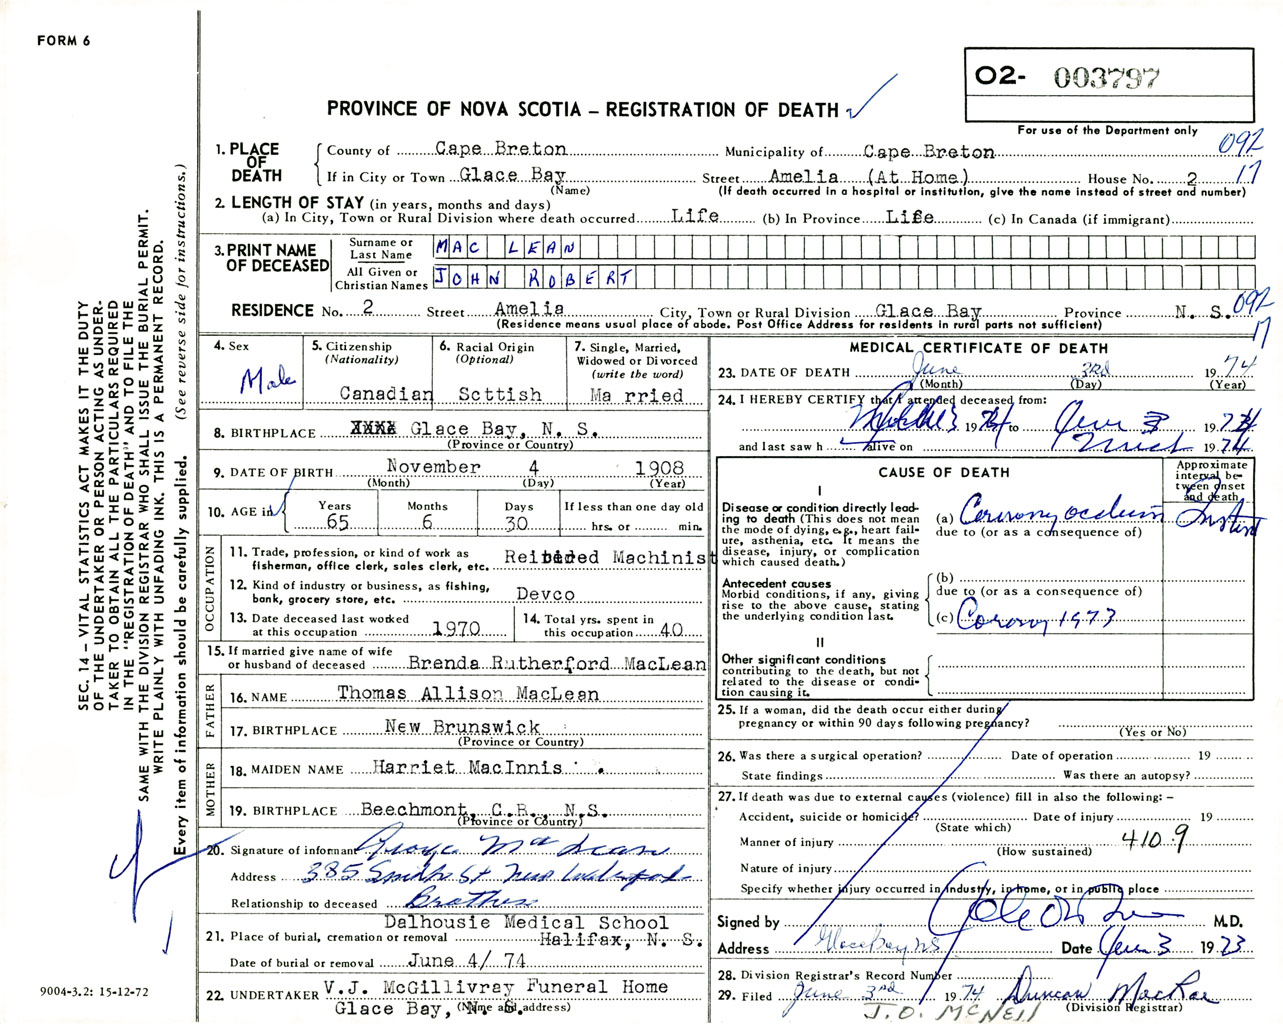 FORM 6
O2- 003797
For use of the Department only
PROVINCE OF NOVA SCOTIA – REGISTRATION OF DEATH
092
17
1. PLACE OF DEATH
County of Cape Breton Municipality of Cape Breton
If in City or Town Glace Bay Street Amelia (At Home) House No. 2
(Name) (If death occurred in a hospital or institution, give the name instead of street and number)
2. LENGTH OF STAY (in years, months and days)
(a) In City, Town or Rural Division where death occurred Life (b) In Province Life (c) In Canada (if immigrant)
3. PRINT NAME OF DECEASED
Surname or Last Name MAC LEAN
All Given or Christian Names JOHN ROBERT
RESIDENCE No. 2 Street Amelia City, Town or Rural Division Glace Bay Province N. S. 092
(Residence means usual place of abode. Post Office Address for residents in rural parts not sufficient) 17
4. Sex Male
5. Citizenship (Nationality) Canadian
6. Racial Origin (Optional) Scttish
7. Single, Married, Widowed or Divorced (write the word) Ma rried
8. BIRTHPLACE XXXX Glace Bay, N. S.
(Province or Country)
9. DATE OF BIRTH November 4 1908
(Month) (Day) (Year)
10. AGE in Years 65 Months 6 Days 30 If less than one day old hrs. or min.
OCCUPATION
11. Trade, profession, or kind of work as fisherman, office clerk, sales clerk, etc. Machinist
12. Kind of industry or business, as fishing, bank, grocery store, etc. Devco
13. Date deceased last worked at this occupation 1970
14. Total yrs. spent in this occupation 40
15. If married give name of wife or husband of deceased Brenda Rutherford MacLean
FATHER
16. NAME Thomas Allison MacLean
17. BIRTHPLACE New Brunswick
(Province or Country)
MOTHER
18. MAIDEN NAME Harriet MacInnis
19. BIRTHPLACE Beechmont, C.B., N.S.
(Province or Country)
20. Signature of informant George MacLean
Address 385 Smith St New Waterford
Relationship to deceased Brother
21. Place of burial, cremation or removal Dalhousie Medical School
Halifax, N. S.
Date of burial or removal June 4/ 74
22. UNDERTAKER V.J. McGillivray Funeral Home
Glace Bay, N. S.
(Name and address)
MEDICAL CERTIFICATE OF DEATH
23. DATE OF DEATH June 3rd 1974
(Month) (Day) (Year)
24. I HEREBY CERTIFY that I attended deceased from:
19 to 19
and last saw h alive on March 1974
CAUSE OF DEATH
Approximate interval between onset and death
I
Disease or condition directly leading to death (This does not mean the mode of dying, e.g., heart failure, asthenia, etc. It means the disease, injury, or complication which caused death.)
(a) Coronary occlusion Instant
due to (or as a consequence of)
Antecedent causes
Morbid conditions, if any, giving rise to the above cause, stating the underlying condition last.
(b)
due to (or as a consequence of)
(c) Coronary 1973
II
Other significant conditions
contributing to the death, but not related to the disease or condition causing it.
25. If a woman, did the death occur either during pregnancy or within 90 days following pregnancy?
(Yes or No)
26. Was there a surgical operation? Date of operation 19
State findings Was there an autopsy?
27. If death was due to external causes (violence) fill in also the following: –
Accident, suicide or homicide? Date of injury 19
(State which)
Manner of injury 410.9
(How sustained)
Nature of injury
Specify whether injury occurred in industry, in home, or in public place
Signed by M.D.
Address Glace Bay NS Date June 3 1973
28. Division Registrar's Record Number
29. Filed June 3rd 1974 Duncan MacRae
(Division Registrar)
J.O. MCNEIL
SEC. 14 – VITAL STATISTICS ACT MAKES IT THE DUTY
OF THE UNDERTAKER OR PERSON ACTING AS UNDER-
TAKER TO OBTAIN ALL THE PARTICULARS REQUIRED
IN THE "REGISTRATION OF DEATH" AND TO FILE THE
SAME WITH THE DIVISION REGISTRAR WHO SHALL ISSUE THE BURIAL PERMIT.
WRITE PLAINLY WITH UNFADING INK. THIS IS A PERMANENT RECORD.
Every item of information should be carefully supplied. (See reverse side for instructions.)
9004-3.2: 15-12-72